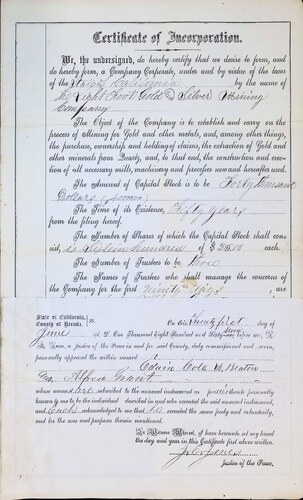 Certificate of Incorporation.
We, the undersigned, do hereby certify that we desire to form, and
do hereby form, a Company Corporate, under and by virtue of the laws
of the State of California by the name of
The Light Foot Gold & Silver Mining
Company
The Object of the Company is to establish and carry on the
process of Mining for Gold and other metals, and, among other things,
the purchase, ownership and holding of claims, the extraction of Gold and
other minerals from Quartz, and, to that end, the construction and erec-
tion of all necessary mills, machinery and processes now and hereafter used.
The Amount of Capital Stock is to be Forty thousand
Dollars
The Time of its Existence, Fifty years
from the filing hereof.
The Number of Shares of which the Capital Stock shall con-
sist, is Sixteen hundred of $25.00 each
The Number of Trustees to be three
The Names of Trustees who shall manage the concerns of
the Company for the first ninety days
are
State of California,
County of
On this twenty first day of
June A. D. One Thousand Eight Hundred and Sixty- before me,
a Justice of the Peace in and for said County, duly commissioned and sworn,
personally appeared the within named
Edwin Cole
Alfred
whose names are subscribed to the annexed instrument as parties thereto, personally
known to me to be the individual described in and who executed the said annexed instrument,
and Each acknowledged to me that he executed the same freely and voluntarily, and
for the uses and purposes therein mentioned.
In Witness Whereof, I have hereunto set my hand
the day and year in this Certificate first above written.
Justice of the Peace.